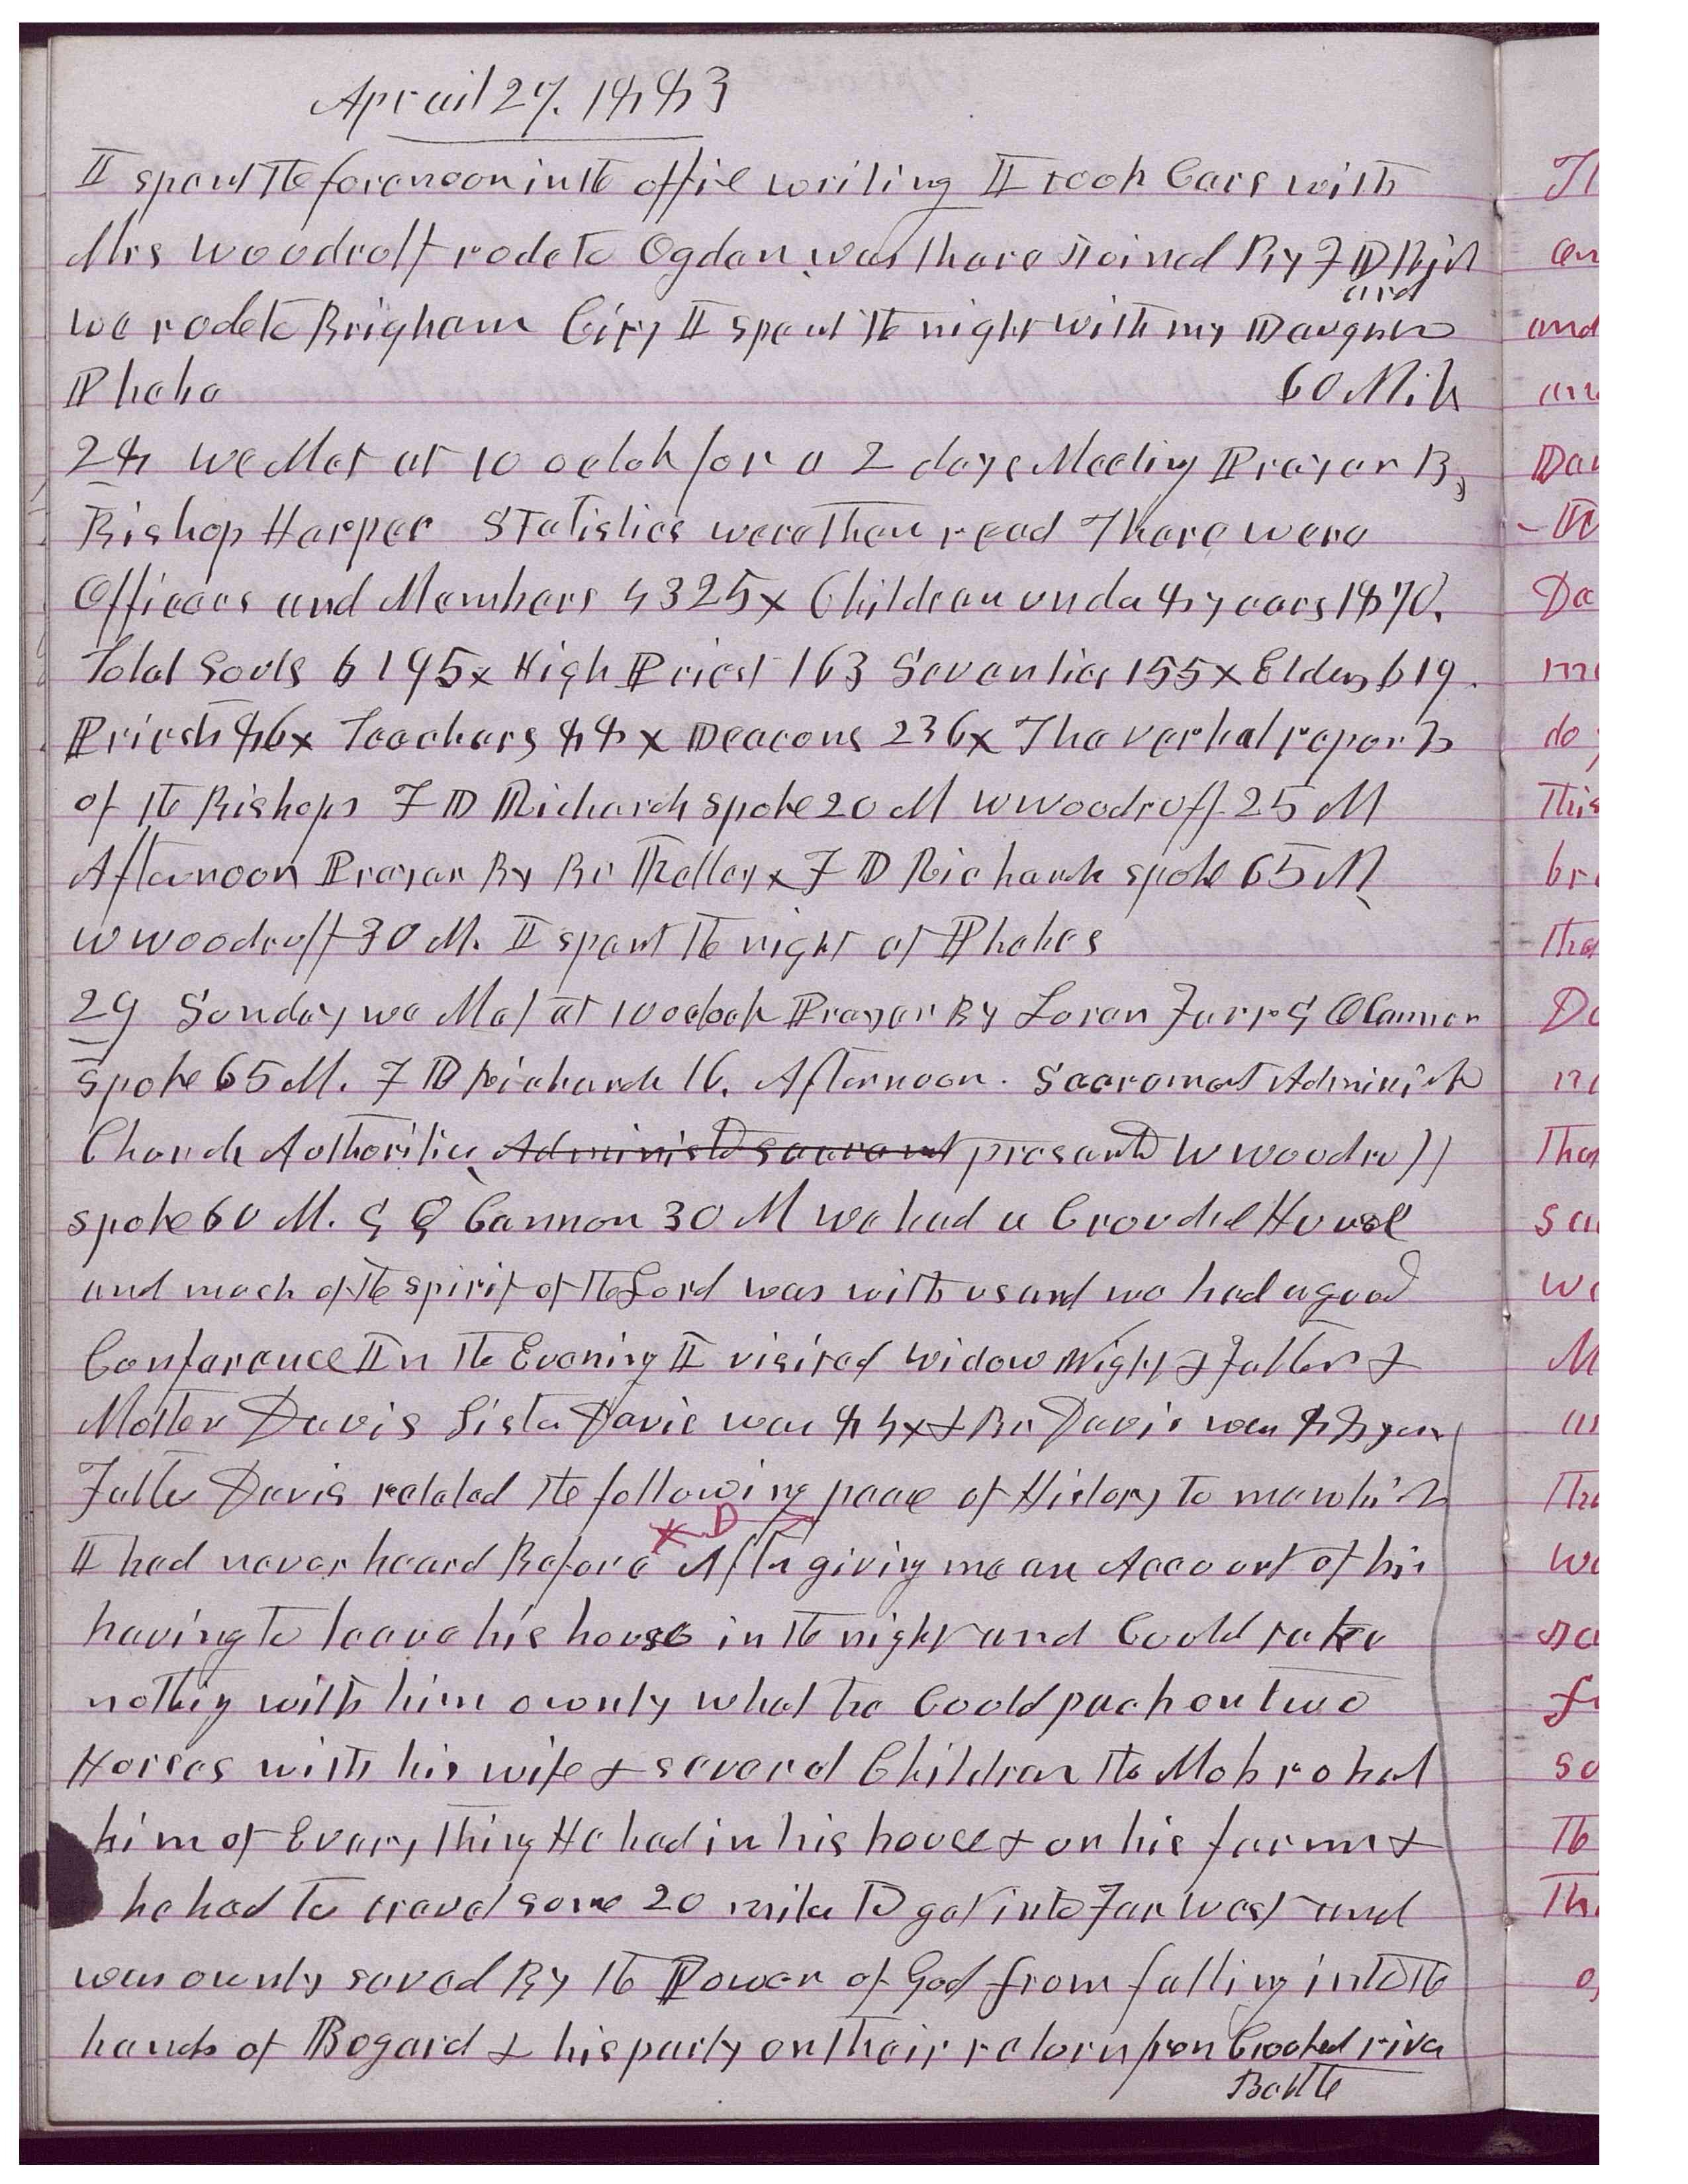 Aprail 27. 1883
I spent the forenoon in the office writing I took Cars with
Mrs Woodruff rode to Ogden was there Joined By F D Rich
ard
we rode to Brigham City I spent the night with my Daughter
Phebe 60 Mils
28 We Met at 10 oclok for a 2 days Meeting Prayer By
Bishop Harper Statistics were then read There were
Officers and Members 4325x Children under 8 years 1870.
Total Souls 6195x High Priest 163 Seventies 155x Elders 619.
Priests 86x Teachers 88x Deacons 236x The verbal reports
of the Bishops F D Richards spoke 20 M W Woodruff 25 M
Afternoon Prayer By Br x F D Richards spoke 65 M
W Woodruff 30 M. I spent the night at Phebes
29 Sunday we Met at 10 oclock Prayer By Loran Farr G Q Cannon
spoke 65 M. F D Richards 16. Afternoon. Sacrament Administd
Church Authorities Administd Sacrament presented W Woodruff
spoke 60 M. G Q Cannon 30 M We had a Crouded House
and much of the spirit of the Lord was with us and we had a good
Conference In the Evening I visited widow Wight & Father &
Mother Davis Sister Davis was 84x & Br Davis was 88 years
Father Davis related the following peace of History to me which
X D
I had never heard Before After giving me an Account of his
having to leave his house in the night and Could take
nothing with him ownly what he Could pack on two
Horses with his wife & several Children the Mob robed
him of Every thing He had in his house & on his farm &
he had to travel some 20 miles to get into Far West and
was ownly saved By the Power of God from falling into the
hands of Bogard & his party on their return from Crooked river
Battle